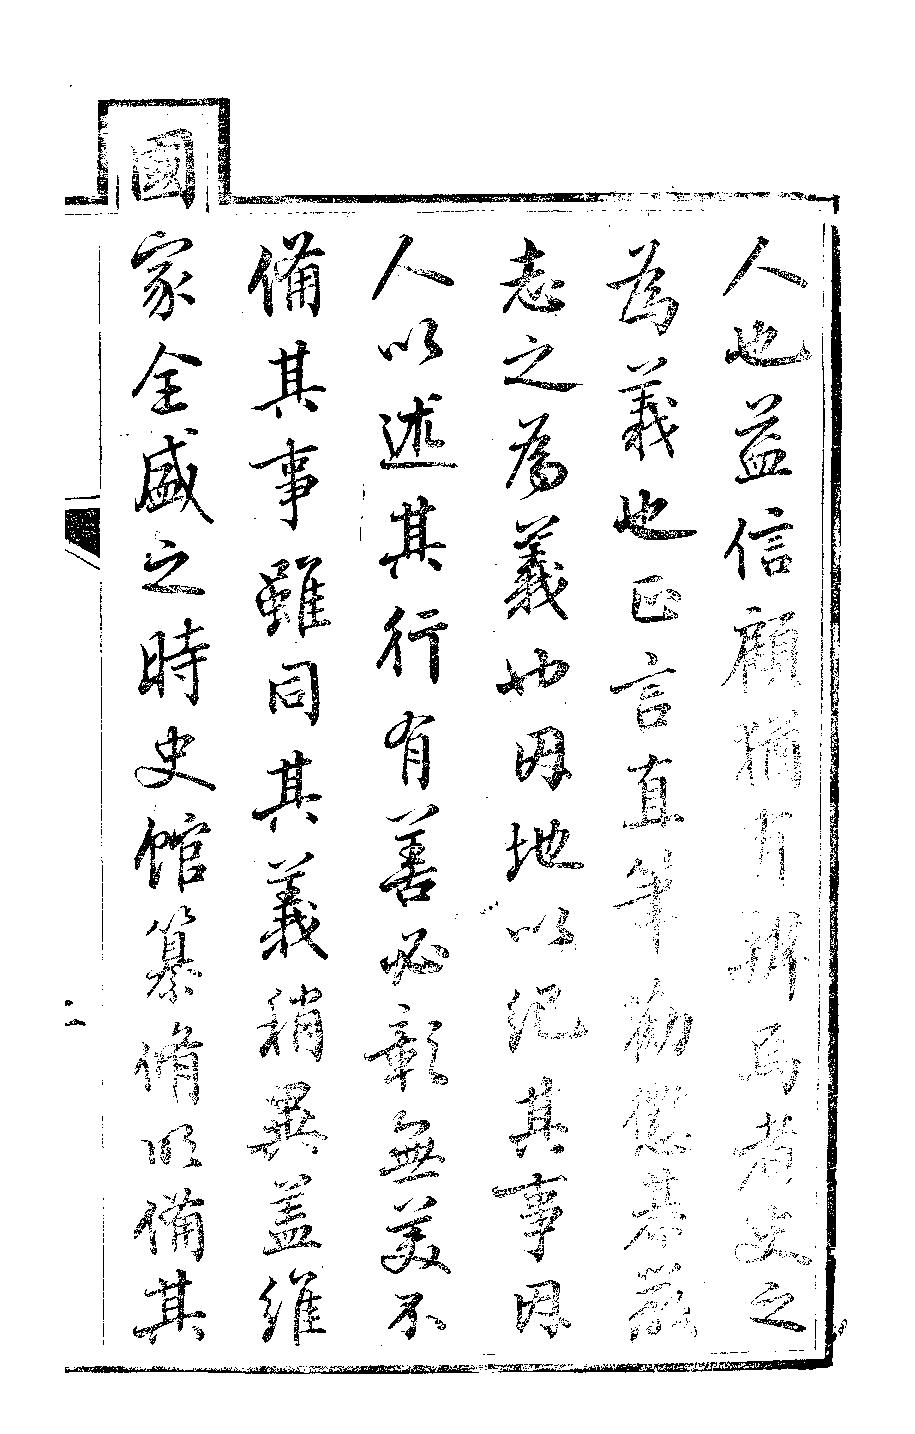 人也益信顧猶有辨焉者史之
為義也正言直筆勸懲綦嚴
志之為義也因地以紀其事因
人以述其行有善必彰無美不
備其事雖同其義稍異蓋維
國家全盛之時史館纂脩以備其